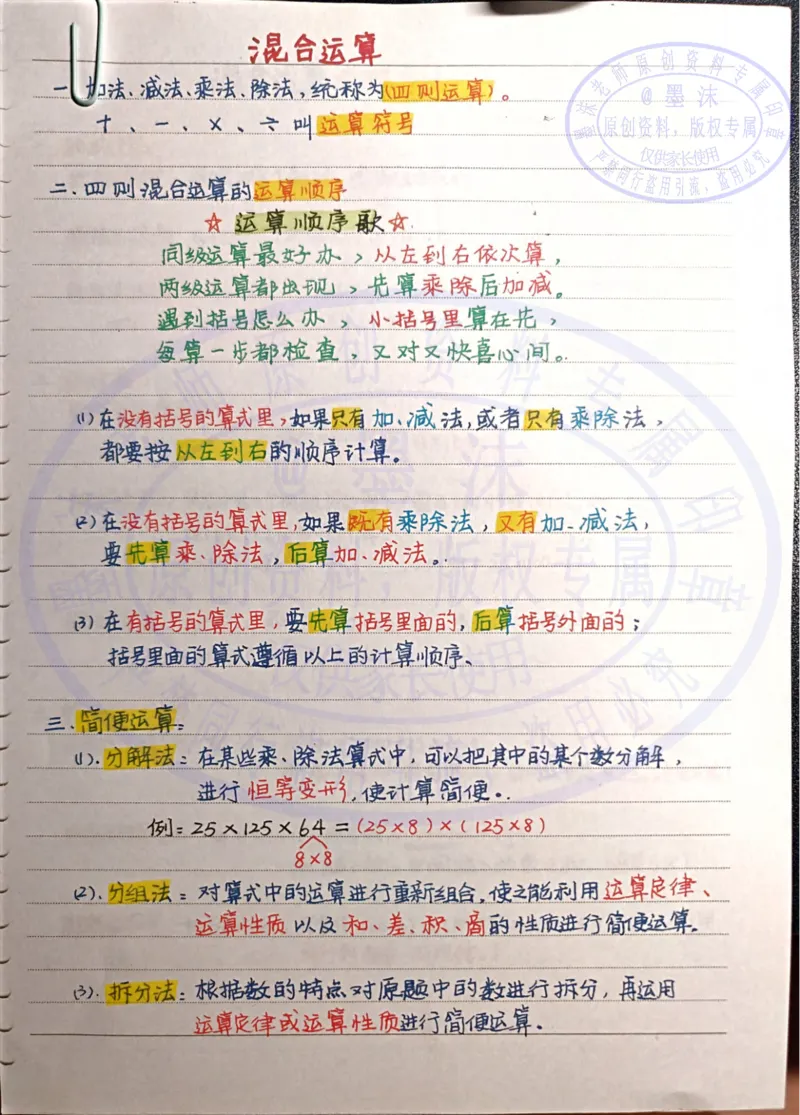 混合运算
一、加法、减法、乘法、除法，统称为(四则运算)。
+、-、×、÷叫运算符号
二、四则混合运算的运算顺序
☆运算顺序歌☆
同级运算最好办，从左到右依次算，
两级运算都出现，先算乘除后加减。
遇到括号怎么办，小括号里算在先，
每算一步都检查，又对又快喜心间。
(1)在没有括号的算式里，如果只有加、减法，或者只有乘除法，
都要按从左到右的顺序计算。
(2)在没有括号的算式里，如果既有乘除法，又有加、减法，
要先算乘、除法，后算加、减法。
(3)在有括号的算式里，要先算括号里面的，后算括号外面的；
括号里面的算式遵循以上的计算顺序、
三、简便运算：
(1)．分解法：在某些乘、除法算式中，可以把其中的某个数分解，
进行恒等变形，使计算简便。
例：25×125×64=(25×8)×(125×8)
8×8
(2)．分组法：对算式中的运算进行重新组合，使之能利用运算定律、
运算性质以及和、差、积、商的性质进行简便运算。
(3)．拆分法：根据数的特点对原题中的数进行拆分，再运用
运算定律或运算性质进行简便运算。
墨沫老师原创资料专属印章
@墨沫
原创资料，版权专属
仅供家长使用
严禁同行盗用引流，盗用必究